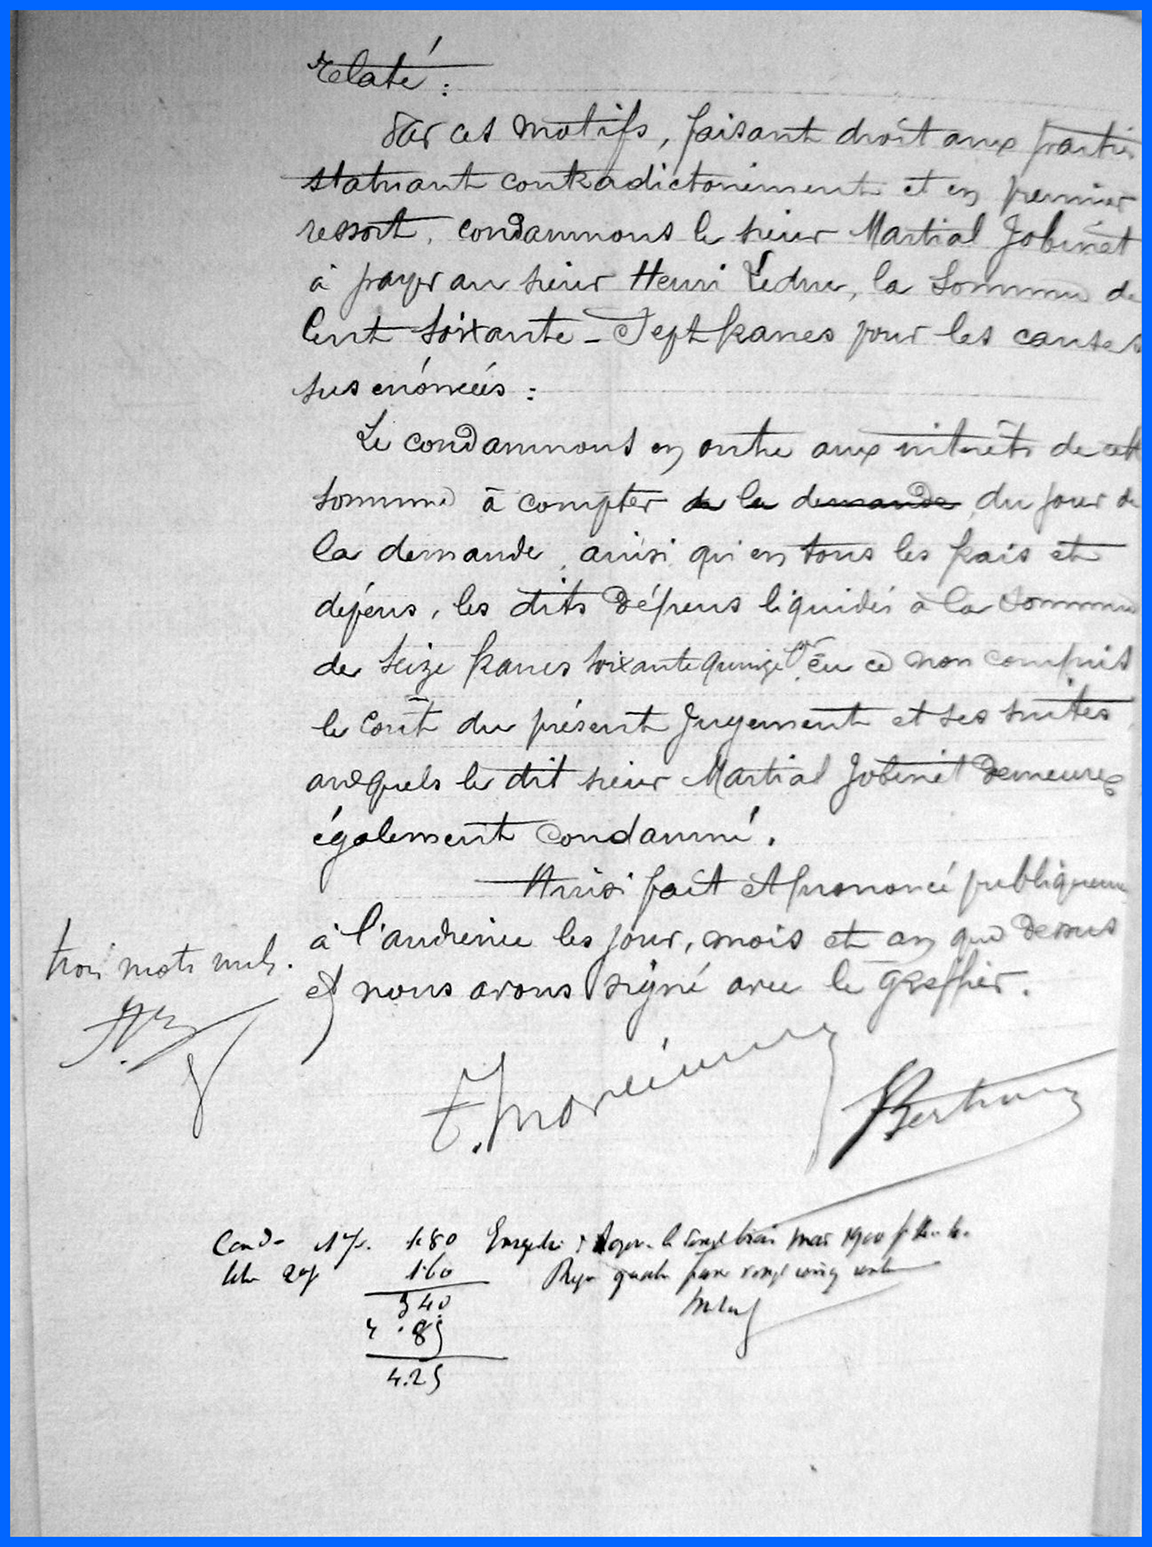 relaté :
Par ces motifs, faisant droit aux parties
statuant contradictoirement et en premier
ressort, condamnons le sieur Martial Jobinet
à payer au sieur Henri Leduc, la somme de
Cent soixante-sept francs pour les causes
sus énoncées :
Le condamnons en outre aux intérêts de cette
somme à compter de la demande du jour de
la demande, ainsi qu'en tous les frais et
dépens, les dits dépens liquidés à la somme
de seize francs soixante quinze en ce non compris
le coût du présent jugement et ses suites
auxquels le dit sieur Martial Jobinet demeure
également condamné.
Ainsi fait et prononcé publiquement
à l'audience les jour, mois et an que dessus
trois mots nuls.
et nous avons signé avec le greffier.
Bertrand
Cond. 1.80
1.60
3 40
.85
4.25
mai 1900